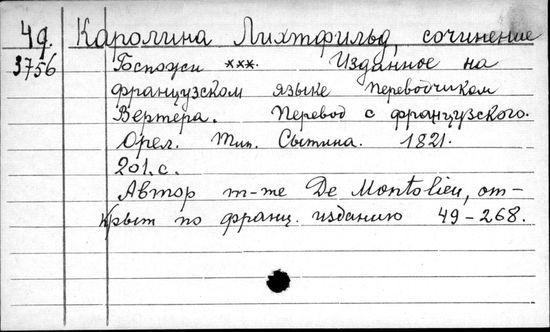 49. Каролина Лихтфильд, сочинение
3756 Госпожи ***. Изданное на
французском языке переводчиком
Вертера. Перевод с французского.
Орел. Тип. Сытина. 1821.
201. с.
Автор m-me De Montolieu, от-
крыт по франц. изданию 49-268.